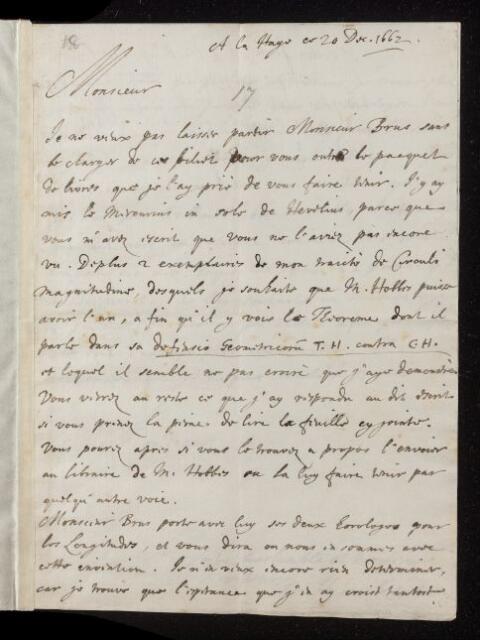 18
A la Haye ce 20 Dec. 1662.
Monsieur
17
Je ne veux pas laisser partir Monsieur Brus sans
le charger de ce billet pour vous outre le pacquet
de livres que je l'ay prié de vous faire tenir. J'y ay
mis le Mercurius in sole de Hevelius, parce que
vous m'avez escrit que vous ne l'aviez pas incore
vu. De plus 2 exemplaires de mon traité de Circuli
magnitudine, desquels je souhaite que M. Hobbes puisse
avoir l'un, a fin qu'il y voie le Theoreme dont il
parle dans sa defensio Geometricorū T. H. contra C. H.
et lequel il semble ne pas croire que j'aye demonstrè
Vous verrez au reste ce que j'ay respondu au dit escrit
si vous prenez la peine de lire la feuille cy jointe.
Vous pourez apres si vous le trouvez a propos l'envoier
au libraire de M. Hobbes ou la luy faire tenir par
quelqu'autre voie.
Monsieur Brus porte avec luy ses deux horologes pour
les Longitudes, et vous dira ou nous in sommes avec
cette invention. Je n'in veux incore rien determiner,
car je trouve que l'esperance que j'in ay croist tantost